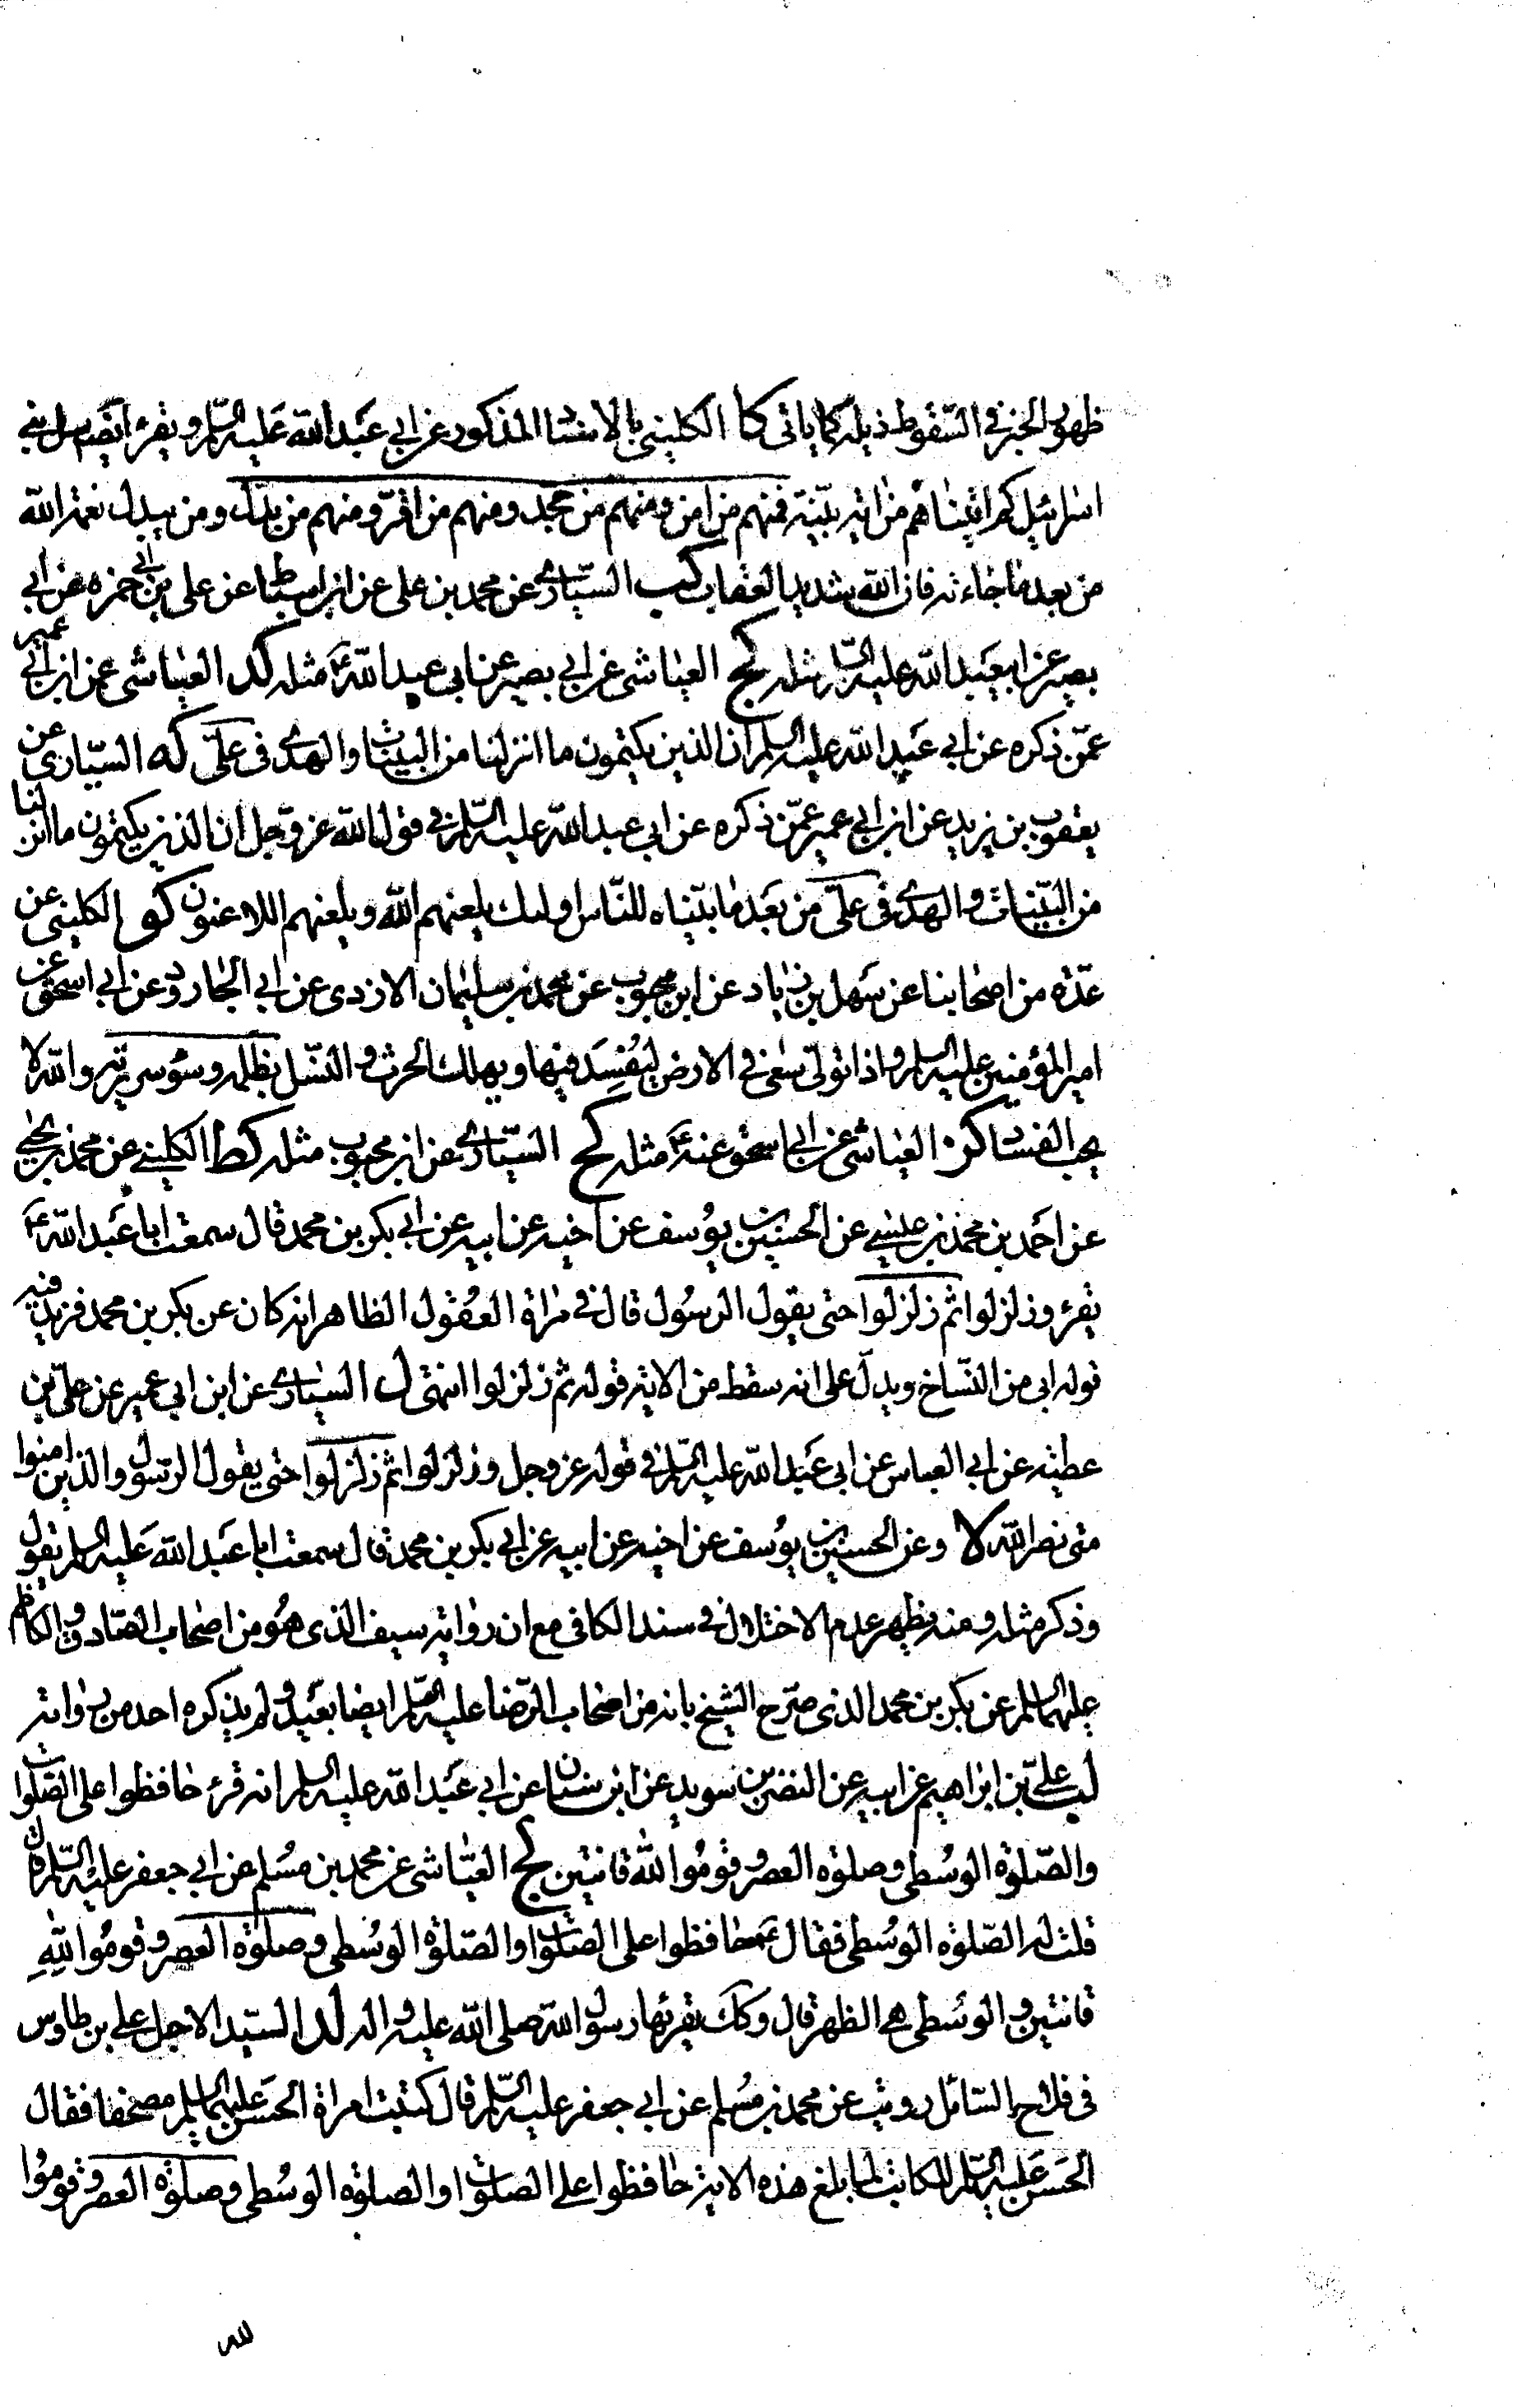 ظهور الخبر في السقوط ذيله كما ياتى كا الكلينى بالاسناد المذكور عن ابي عبد الله عليه السلم ويقرء ايضا سل بني
اسرائيل كم اتيناهم من اية بينة فمنهم من امن ومنهم من جحد ومنهم من اقرّ ومنهم من بدّل ومن يبدل نعمة الله
من بعد ما جاءته فان الله شديد العقاب كب السيّارى عن محمد بن على عن ابن اسباط عن على بن ابي حمزه عن ابي
بصير عن ابيعبد الله عليه السلم مثله كج العياشى عن ابي بصير عن ابي عبد الله ع مثله كد العياشى عن ابن ابي عمير
عمّن ذكره عن ابي عبد الله عليه السلم ان الذين يكتمون ما انزلنا من البينات والهدى فى علىّ كه السيّارى عن
يعقوب بن يزيد عن ابن ابي عمير عمّن ذكره عن ابي عبد الله عليه السلم في قول الله عز وجل ان الذين يكتمون ما انزلنا
من البيّنات والهدى فى علىّ من بعد ما بيّناه للنّاس اولئك يلعنهم الله ويلعنهم اللاعنون كو الكلينى عن
عدّة من اصحابنا عن سهل بن زياد عن ابن محبوب عن محمد بن سليمان الازدى عن ابي الجارود عن ابي اسحق عن
امير المؤمنين عليه السلم واذا تولّى سعى في الارض ليُفسِدَ فيها ويهلك الحرث والنّسل بظلمه وسُوء سريرته والله لا
يحب الفساد كز العياشى عن ابي اسحق عنه ع مثله كح السيّارى عن ابن محبوب مثله كط الكليني عن محمد بن يحيى
عن احمد بن محمد بن عيسى عن الحسين بن يوُسف عن اخيه عن ابيه عن ابي بكر بن محمد قال سمعت ابا عبد الله ع
يقرء وزلزلوا ثم زلزلوا حتى يقول الرسُول قال في مراة العُقول الظاهر انه كان عن بكر بن محمد فزيد فيه
قوله ابى من النّساخ ويدلّ على انه سقط من الاية قوله ثم زلزلوا انتهى ل السيّارى عن ابن ابي عمير عن علىّ بن
عطيّه عن ابي العباس عن ابي عبد الله عليه السلم في قوله عز وجل وزلزلوا ثم زلزلوا حتى يقول الرسول والذين امنوا
متى نصر الله لا وعن الحسين بن يوُسف عن اخيه عن ابيه عن ابي بكر بن محمد قال سمعت ابا عبد الله عليه السلم يقول
وذكر مثله ومنه يظهر عدم الاختلال في سند الكافى مع ان رواية سيف الذى هُو من اصحاب الصّادق والكاظم
عليهما السلم عن بكر بن محمد الذى صّرح الشيخ بانه من اصحاب الرّضا عليه السلم ايضا بعيد ولم يذكره احد من رواته
لب علىّ بن ابراهيم عن ابيه عن النضر بن سويد عن ابن سنان عن ابي عبد الله عليه السلم انه قرء حافظوا على الصّلوات
والصّلوة الوسُطى وصلوة العصر وقومُوا لله قانتين لج العيّاشى عن محمد بن مسُلم عن ابي جعفر عليه السلم قال
قلت له الصّلوة الوُسطى فقال ع حافظوا على الصّلوات والصّلوة الوُسطى وصلوة العصر وقومُوا للهِ
قانتين والوسُطى هي الظهر قال وكك يقرئها رسول الله صلى الله عليه واله لد السيّد الاجل على بن طاوس
فى فلاح السّائل رويت عن محمد بن مسُلم عن ابي جعفر عليه السلم قال كتبت امراة الحسَن عليهما السلم مصحفا فقال
الحَسن عَليه السلم للكاتب لما بلغ هذه الاية حافظوا على الصلوات والصلوة الوسُطى وصلوة العصر وقومُوا
لله